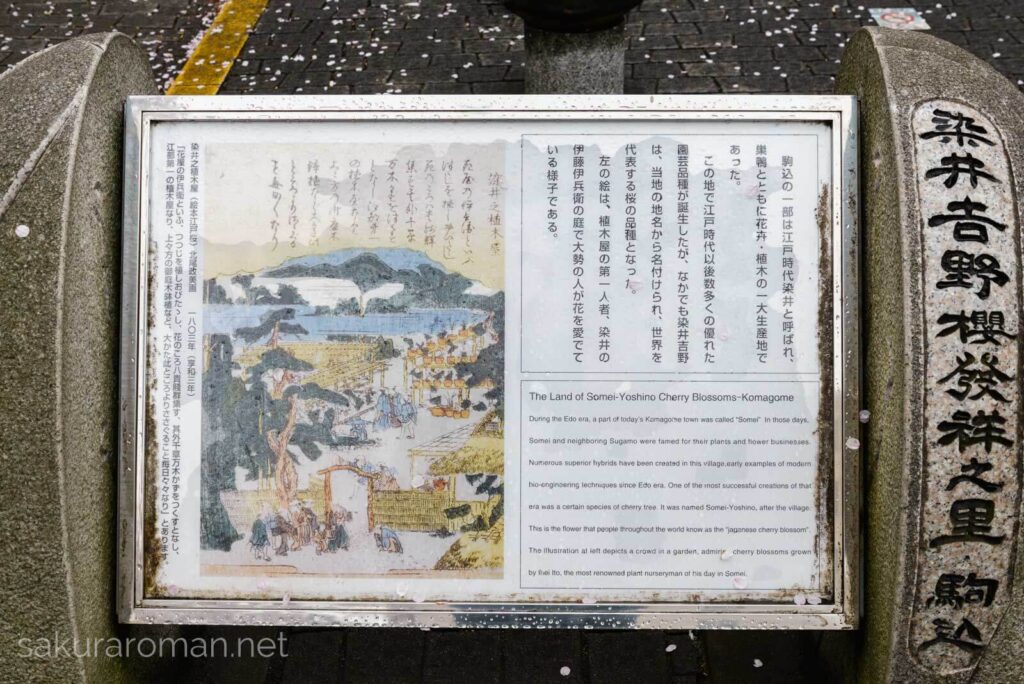 染井吉野櫻發祥之里 駒込
駒込の一部は江戸時代染井と呼ばれ、
巣鴨とともに花卉・植木の一大生産地で
あった。
この地で江戸時代以後数多くの優れた
園芸品種が誕生したが、なかでも染井吉野
は、当地の地名から名付けられ、世界を
代表する桜の品種となった。
左の絵は、植木屋の第一人者、染井の
伊藤伊兵衛の庭で大勢の人が花を愛でて
いる様子である。
The Land of Somei-Yoshino Cherry Blossoms-Komagome
During the Edo era, a part of today's Komagome town was called "Somei" In those days,
Somei and neighboring Sugamo were famed for their plants and flower businesses.
Numerous superior hybrids have been created in this village,early examples of modern
bio-engineering techniques since Edo era. One of the most successful creations of that
era was a certain species of cherry tree. It was named Somei-Yoshino, after the village.
This is the flower that people throughout the world know as the "japanese cherry.blossom".
The Illustration at left depicts a crowd in a garden, admiring cherry blossoms grown
by Ihei Ito, the most renowned plant nurseryman of his day in Somei.
染井之植木屋
染井之植木屋(絵本江戸桜)北尾政美画 一八〇三年(享和三年)
「花屋の伊兵衛といふ、つつじを植しおびたゝし、花のころハ貴賤群集す、其外千草万木かずをつくすとなし、
江都第一の植木屋なり、上々方の御庭木鉢植など、大かた此ところよりささぐること毎日々々なり」とあります
sakuraroman.net